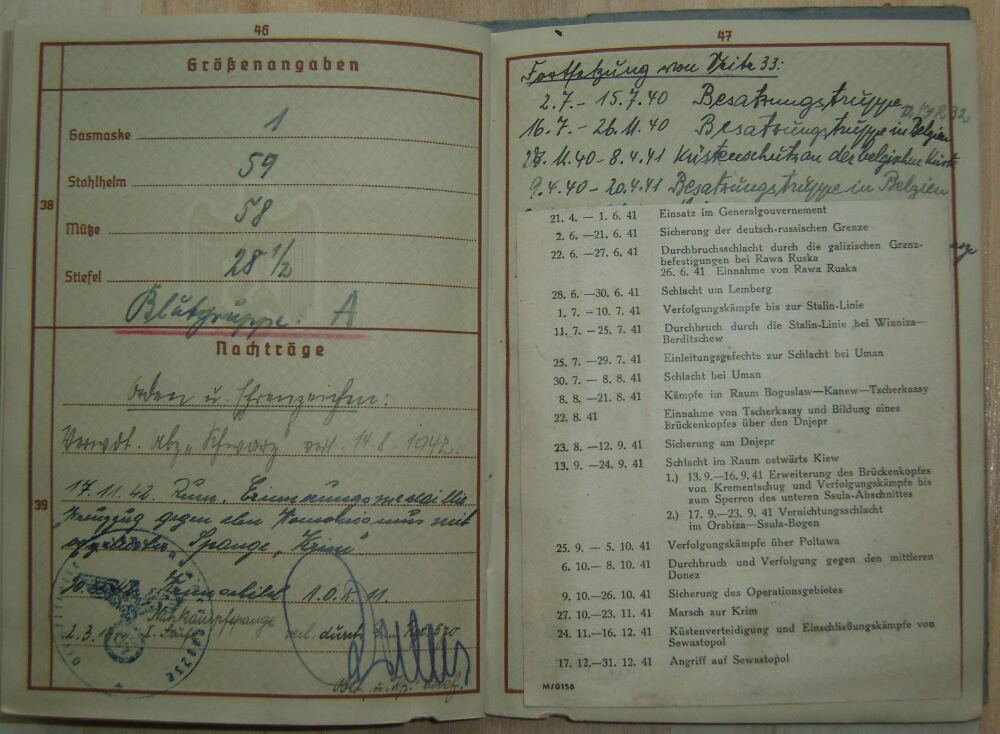 46
Größenangaben
Gasmaske 1
Stahlhelm 59
38
Mütze 58
Stiefel 28 1/2
Blutgruppe: A
Nachträge
Orden u. Ehrenzeichen:
Verwdt. Abz. „Schwarz" verl. 14.8.1942.
39
17.11.42. Rum. Erinnerungsmedaille
Kreuzzug gegen den Kommunismus mit
Spange „Krim"
Krimschild
Nahkampfspange
2.3. I. Stufe verl. durch
47
Fortsetzung von Seite 33:
2.7. - 15.7.40 Besatzungstruppe
16.7. - 26.11.40 Besatzungstruppe in Belgien
27.11.40 - 8.4.41 Küstenschutz an der belgischen Küste
9.4.40 - 20.4.41 Besatzungstruppe in Belgien
21. 4. — 1. 6. 41 Einsatz im Generalgouvernement
2. 6. —21. 6. 41 Sicherung der deutsch-russischen Grenze
22. 6. —27. 6. 41 Durchbruchsschlacht durch die galizischen Grenz-
befestigungen bei Rawa Ruska
26. 6. 41 Einnahme von Rawa Ruska
28. 6. —30. 6. 41 Schlacht um Lemberg
1. 7. — 10. 7. 41 Verfolgungskämpfe bis zur Stalin-Linie
11. 7. — 25. 7. 41 Durchbruch durch die Stalin-Linie bei Winniza—
Berditschew
25. 7. —29. 7. 41 Einleitungsgefechte zur Schlacht bei Uman
30. 7. — 8. 8. 41 Schlacht bei Uman
8. 8. —21. 8. 41 Kämpfe im Raum Boguslaw—Kanew—Tscherkassy
22. 8. 41 Einnahme von Tscherkassy und Bildung eines
Brückenkopfes über den Dnjepr
23. 8. —12. 9. 41 Sicherung am Dnjepr
13. 9. —24. 9. 41 Schlacht im Raum ostwärts Kiew
1.) 13. 9.—16. 9. 41 Erweiterung des Brückenkopfes
von Krementschug und Verfolgungskämpfe bis
zum Sperren des unteren Ssula-Abschnittes
2.) 17. 9.—23. 9. 41 Vernichtungsschlacht
im Orsbiza—Ssula-Bogen
25. 9. — 5. 10. 41 Verfolgungskämpfe über Poltawa
6. 10.— 8. 10. 41 Durchbruch und Verfolgung gegen den mittleren
Donez
9. 10.—26. 10. 41 Sicherung des Operationsgebietes
27. 10.—23. 11. 41 Marsch zur Krim
24. 11.—16. 12. 41 Küstenverteidigung und Einschließungskämpfe von
Sewastopol
17. 12.—31. 12. 41 Angriff auf Sewastopol
M/0156